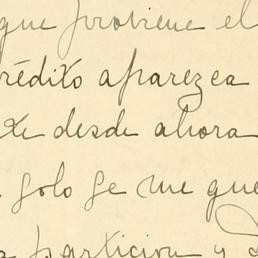 que proviene el
rédito aparezca
te desde ahora
solo se me que
a particion y